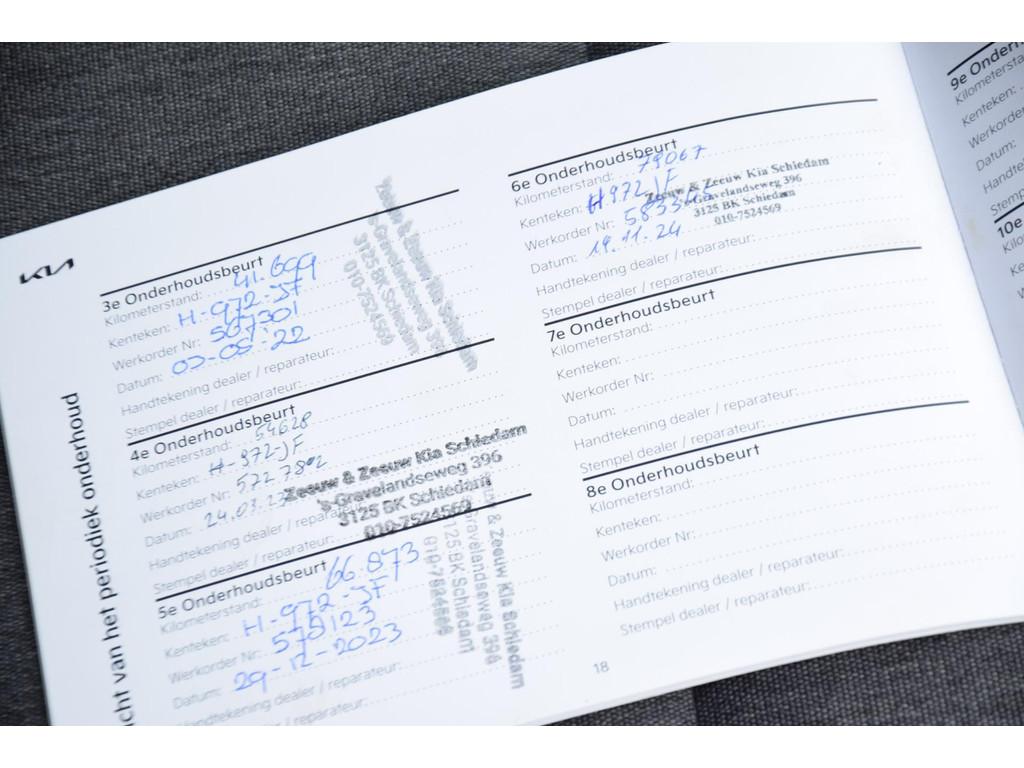 KIA
icht van het periodiek onderhoud
3e Onderhoudsbeurt
Kilometerstand: 41.699
Kenteken: H-972-JF
Werkorder Nr: 567301
Datum: 05-22
Handtekening dealer / reparateur:
Stempel dealer / reparateur:
Zeeuw & Zeeuw Kia Schiedam
's-Gravelandseweg 396
3125 BK Schiedam
010-7524569
4e Onderhoudsbeurt
Kilometerstand: 54628
Kenteken: H-972-JF
Werkorder Nr: 572 7802
Datum: 24.03.23
Handtekening dealer / reparateur:
Stempel dealer / reparateur:
Zeeuw & Zeeuw Kia Schiedam
's-Gravelandseweg 396
3125 BK Schiedam
010-7524569
5e Onderhoudsbeurt
Kilometerstand: 66.873
Kenteken: H-972-JF
Werkorder Nr: 578123
Datum: 29-12-2023
Handtekening dealer / reparateur:
& Zeeuw Kia Schiedam
Gravelandseweg 396
3125 BK Schiedam
010-7524569
6e Onderhoudsbeurt
Kilometerstand: 79067
Kenteken: H972JF
Werkorder Nr:
Datum: 19.11.24
Handtekening dealer / reparateur:
Stempel dealer / reparateur:
Zeeuw & Zeeuw Kia Schiedam
's-Gravelandseweg 396
3125 BK Schiedam
010-7524569
7e Onderhoudsbeurt
Kilometerstand:
Kenteken:
Werkorder Nr:
Datum:
Handtekening dealer / reparateur:
Stempel dealer / reparateur:
8e Onderhoudsbeurt
Kilometerstand:
Kenteken:
Werkorder Nr:
Datum:
Handtekening dealer / reparateur:
Stempel dealer / reparateur:
18
9e Onderh
Kilometersta
Kenteken:
Werkorder
Datum:
Handte
Stemp
10e
Kilo
Ke